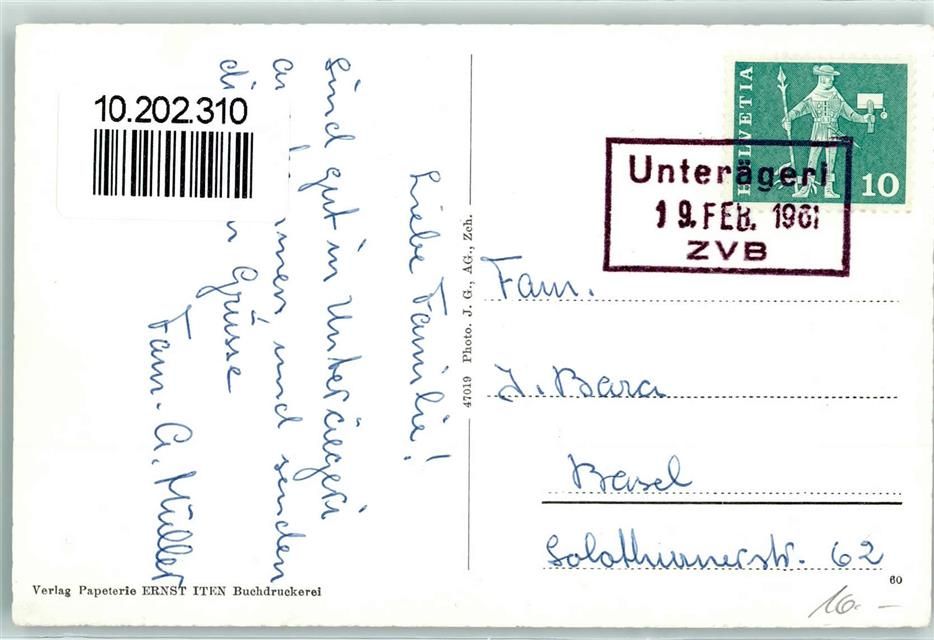 10.202.310
Liebe Familie!
Sind gut in Unterägeri
und senden
Grüsse
Fam. A. Müller
47019 Photo. J. G., AG., Zch.
HELVETIA
10
Unterägeri
19. FEB. 1961
ZVB
Fam.
J. Bara
Basel
Solothurnerstr. 62
Verlag Papeterie ERNST ITEN Buchdruckerei
60
10.-